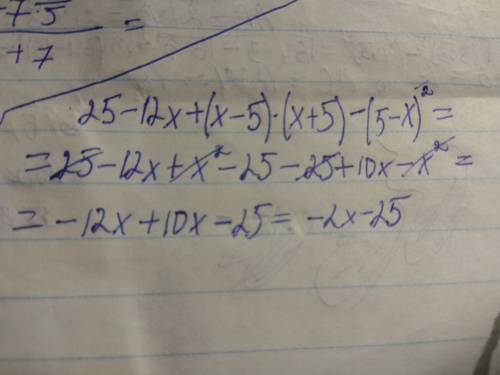 -7 5
+ 7 =
25-12x+(x-5)·(x+5)-(5-x)²=
=25-12x+x²-25-25+10x-x²=
=-12x+10x-25=-2x-25